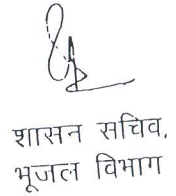 शासन सचिव,
भूजल विभाग